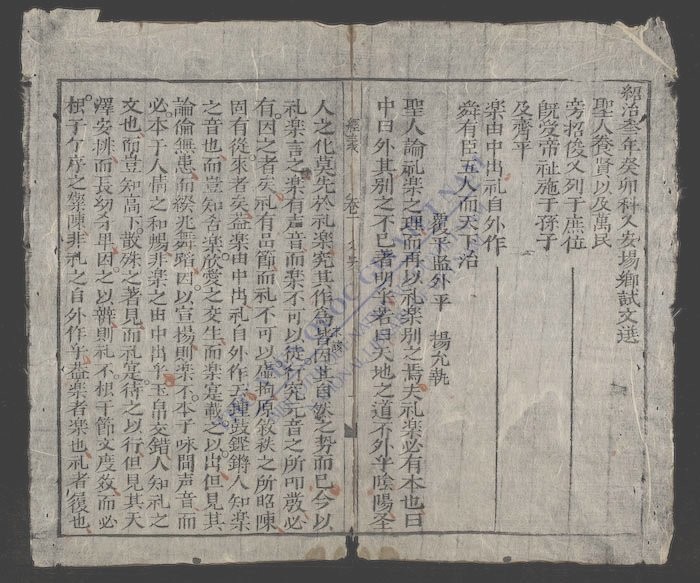 紹治叁年癸卯科乂安場鄉試文選
聖人養賢以及萬民
旁招俊乂列于庶位
既受帝祉施于孫子
及齊平
樂由中出礼自外作
舜有臣五人而天下治
覆平監外平　楊允執
聖人論礼樂之理而再以礼樂別之焉夫礼樂必有本也曰
中曰外其別之不已者明乎若曰天地之道不外乎陰陽聖
經義　卷一
人之化莫先於礼樂究其作為皆因其自然之勢而已今以
礼樂言之樂有声音而樂不可以徒行究元音之所叩戞必
有因之者矣礼有品節而礼不可以虛拘原敘秩之所昭陳
固有從來者矣蓋樂由中出礼自外作云鍾鼓鏗鏘人知樂
之音也而豈知含樂欣愛之交生而樂寔載之以出但見其
論倫無患而綴兆舞蹈因以宣揚則樂不本于咏間声音而
必本于人情之和暢非樂之由中出乎玉帛交錯人知礼之
文也而豈知高下散殊之著見而礼寔待之以行但見其天
澤安排而長幼分畢因之以辨則礼不根于節文度数而必
根于仁序之粲陳非礼之自外作乎蓋樂者樂也礼者履也